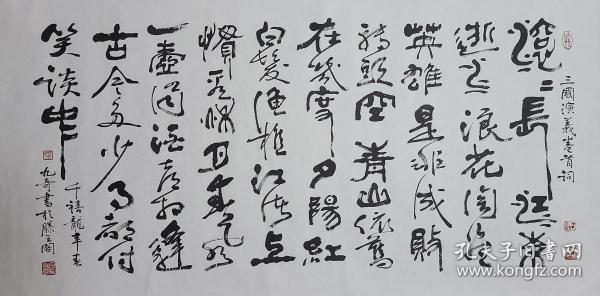 三國演義卷首詞
滚〻長江東
逝水浪花淘盡
英雄是非成敗
轉頭空青山依舊
在幾度夕陽紅
白髮漁樵江渚上
慣看秋月春風
一壺濁酒喜相逢
古今多少事都付
笑談中
千禧龍年春
九奇書於滕王閣
孔夫子旧书网
www.kongfz.com